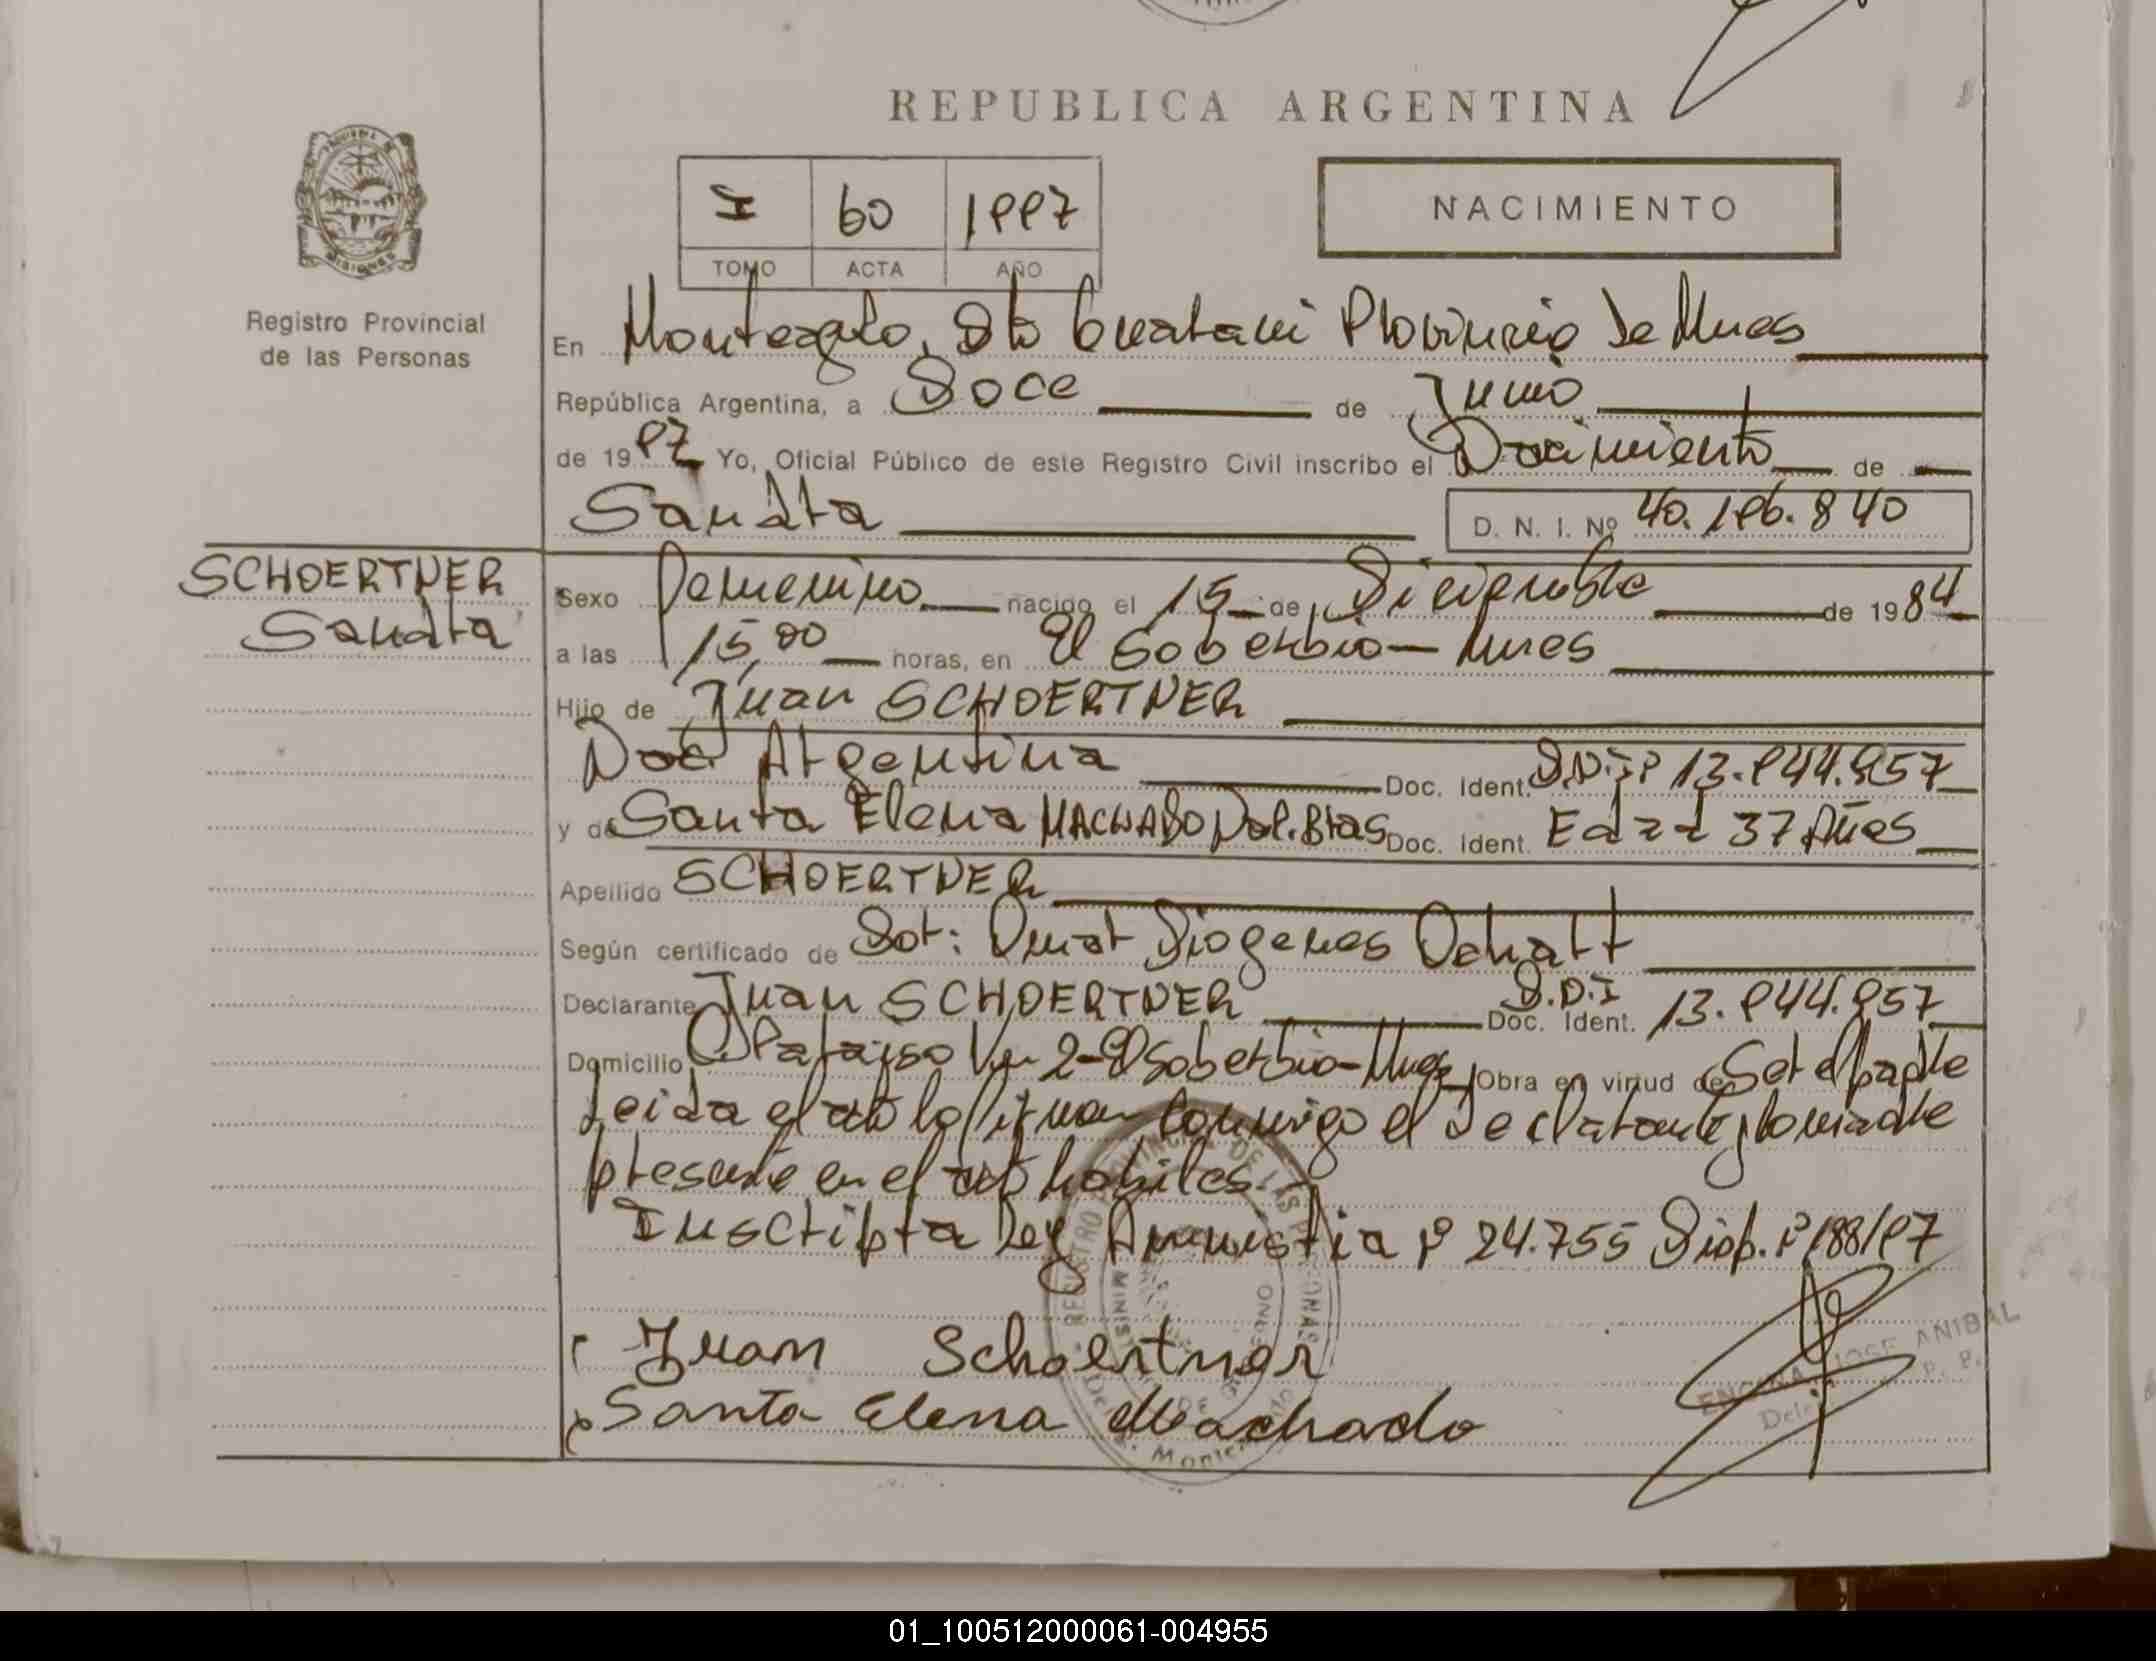 REPUBLICA ARGENTINA
I 60 1997
TOMO ACTA AÑO
NACIMIENTO
MISIONES
Registro Provincial
de las Personas
En Monteagudo, Dto Guaraní Provincia de Mnes
República Argentina, a Doce de Junio
de 1997 Yo, Oficial Público de este Registro Civil inscribo el Nacimiento de
Sandra
D. N. I. Nº 40.196.840
SCHOERTNER
Sandra
Sexo Femenino nacido el 15 de Diciembre de 1984
a las 15,00 horas, en El Soberbio - Mnes
Hijo de Juan SCHOERTNER
Nac. Argentina Doc. Ident. D.N.I. 13.944.957
y de Santa Elena MACHADO Nac. Bras Doc. Ident. Edad 37 Años
Apellido SCHOERTNER
Según certificado de Dor: Omar Diogenes
Declarante Juan SCHOERTNER D.N.I Doc. Ident. 13.944.957
Domicilio Paraiso Km 2 - El Soberbio - Mnes Obra en virtud de Ser el padre
Leida el acta la firman conmigo el declarante y la madre
presente en el acto habiles.-
Inscripta Ley Amnistia Nº 24.755 Disp. Nº 188/97
Juan Schoertner
Santa Elena Machado
ENCINA JOSE ANIBAL
01_100512000061-004955